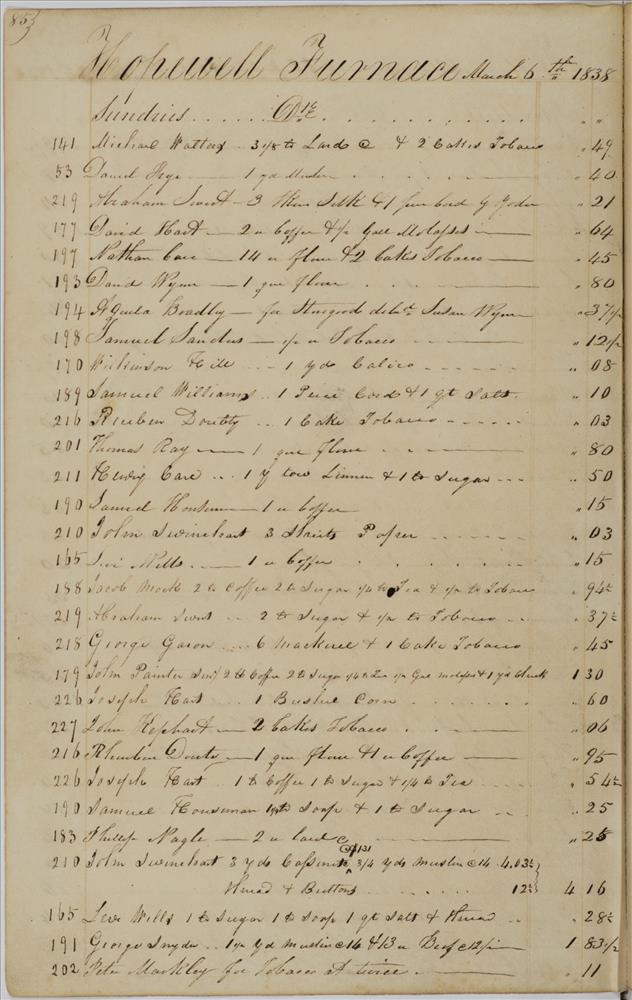 85
Hopewell Furnace March 6th 1838
Sundries Drs
141 Michael Watters 3 1/8 lb Lard @ & 2 Cakes Tobacco " 49
53 Daniel 1 yd Muslin " 40
219 Abraham Swert 3 Silk & 1 " 21
177 David Hart 2 " Coffee & 1/2 Gall Molasses " 64
197 Nathan Care 14 " flour & 2 Cakes Tobacco " 45
193 David Wynn 1 qur flour " 80
194 Aquila Bradly for debt Susan Wynn " 37 1/2
198 Samuel Sanders 1/2 " Tobacco " 12 1/2
170 Wilkinson Hill 1 yd Calico " 08
189 Samuel Williams 1 Peice Cord & 1 qt Salt " 10
216 Reuben Doutty 1 Cake Tobacco " 03
201 Thomas Ray 1 qur flour " 80
211 Henry Care 1 y tow Linnen & 1 lb Sugar " 50
190 Samuel Houseman 1 " Coffee " 15
210 John Swinehart 3 Sheets Paper " 03
165 Levi Mills 1 " Coffee " 15
188 Jacob Mock 2 lb Coffee 2 lb Sugar 1/4 lb Tea & 1/2 lb Tobacco " 94
219 Abraham Swert 2 lb Sugar & 1/2 lb Tobacco " 37
218 George Gason 6 Mackerel & 1 Cake Tobacco " 45
179 John Painter 2 lb Coffee 2 lb Sugar 1/4 lb Tea 1/2 Gal molasses & 1 yd Check 1 30
226 Joseph Hart 1 Bushel Corn " 60
227 John Kephart 2 Cakes Tobacco " 06
216 Rheuben Douty 1 qur flour & 1 " Coffee " 95
226 Joseph Hart 1 lb Coffee 1 lb Sugar & 1/4 lb Tea " 54
190 Samuel Houseman 1 lb Soap & 1 lb Sugar " 25
183 Phillip Nagle 2 " lard " 25
210 John Swinehart 3 yds Cassinett @ 131 3/4 yds muslin @ 14 4.03
thread & Buttons 12 4 16
165 Levi Wills 1 lb Sugar 1 lb Soap 1 qt Salt & thread " 28
191 George Snyder 1 1/2 yd muslin @ 14 & 13 " Beef @ 12 1/2 1 83 1/2
202 Peter Markley for Tobacco at twice " 11